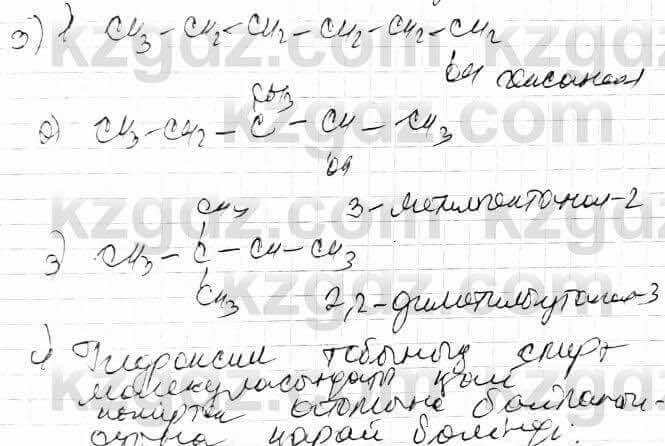 3) 1 CH3 – CH2 – CH2 – CH2 – CH2 – CH2
OH гексанол
CH3
2) CH3 – CH2 – C – CH – CH3
OH
CH3 3-метилпентанол-2
3) CH3 – C – CH – CH3
CH3 2,2-диметилбутанол-3
4) Гидроксил тобының спирт
молекуласындағы қай
көміртек атомына байланысқан-
дығына қарай бөлінді.
kzgdz.com